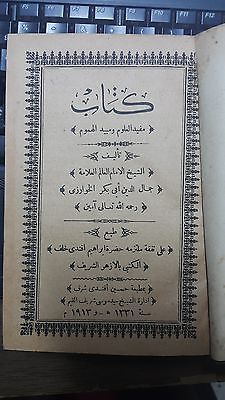 كتاب
مفيد العلوم ومبيد الهموم
تأليف
الشيخ الامام العالم العلامة
جمال الدين أبى بكر الخوارزمى
رحمه الله تعالى آمين
طبع
على نفقة ملتزمه حضرة ابراهيم أفندى خلف
الكتبى بالازهر الشريف
بمطبعة حسين أفندى شرف
ادارة الشيخ شريف
سنة ١٣٣١ ه - و ١٩١٣ م